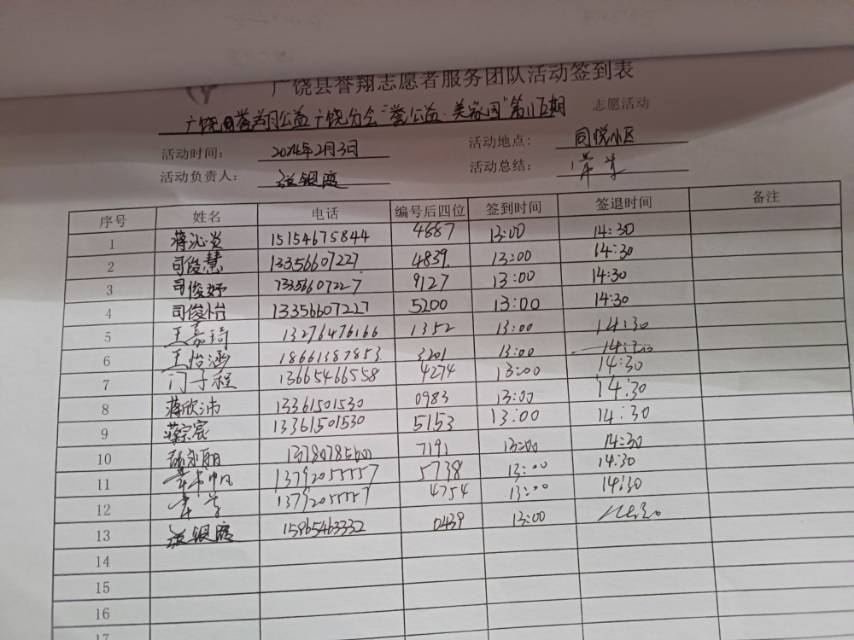 广饶县誉翔志愿者服务团队活动签到表
广饶县誉翔公益广饶分会"誉公益·美家园"第115期 志愿活动
活动时间: 2024年2月3日 活动地点: 同悦小区
活动负责人: 张银霞 活动总结:
序号 姓名 电话 编号后四位 签到时间 签退时间 备注
1 蒋沁炎 15154675844 4887 13:00 14:30
2 司俊慧 13356607227 4839 13:00 14:30
3 司俊妤 13356607227 9127 13:00 14:30
4 司俊怡 13356607227 5200 13:00 14:30
5 王嘉琦 13276476166 1352 13:00 14:30
6 王怡涵 18661387853 3201 13:00 14:30
7 门子程 13665466558 4274 13:00 14:30
8 蒋欣沛 13361501530 0983 13:00 14:30
9 蒋宗宸 13361501530 5153 13:00 14:30
10 7191 13:00 14:30
11 13792055557 5738 13:00 14:30
12 13792055557 4754 13:00 14:30
13 张银霞 15965463332 0439 13:00 14:30
14
15
16
17